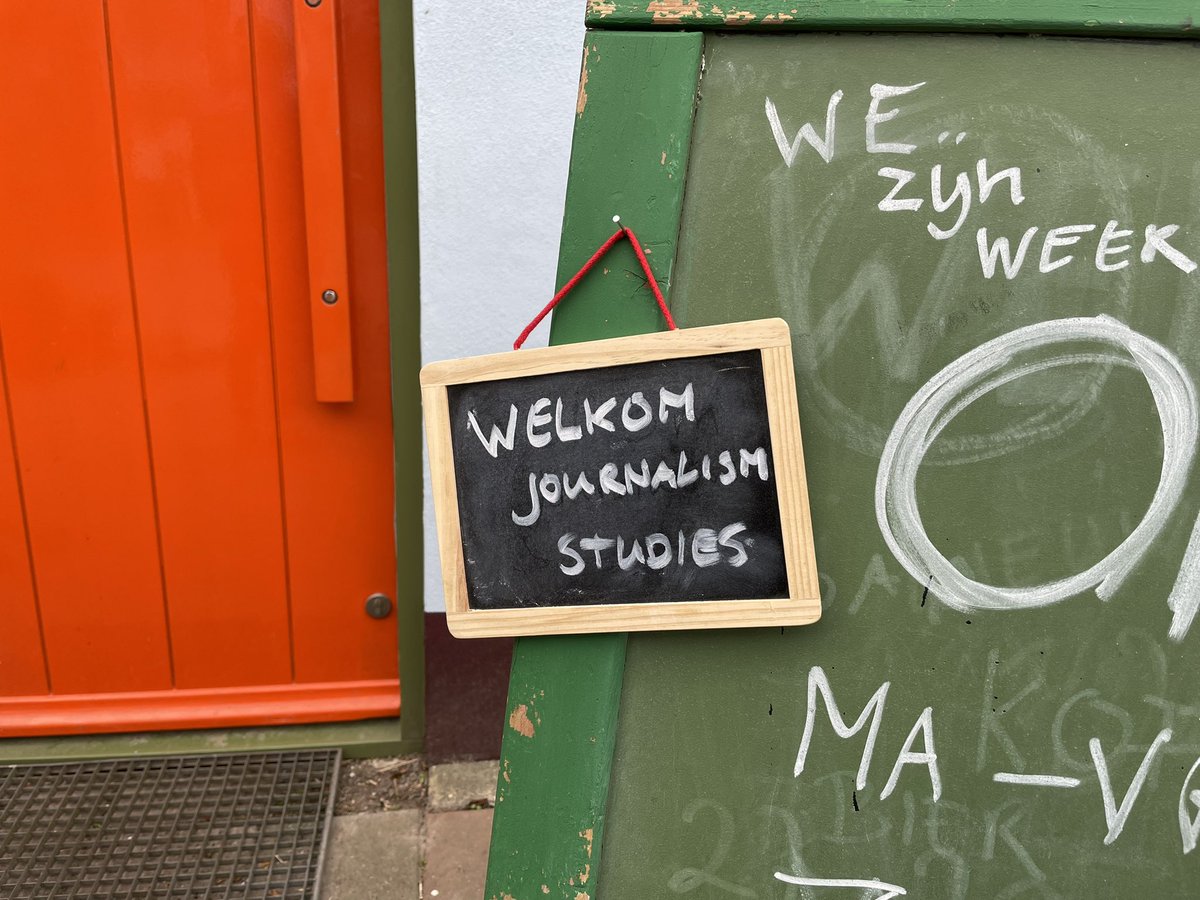 WELKOM
JOURNALISM
STUDIES
WE
zijn
WEEK
MA - V